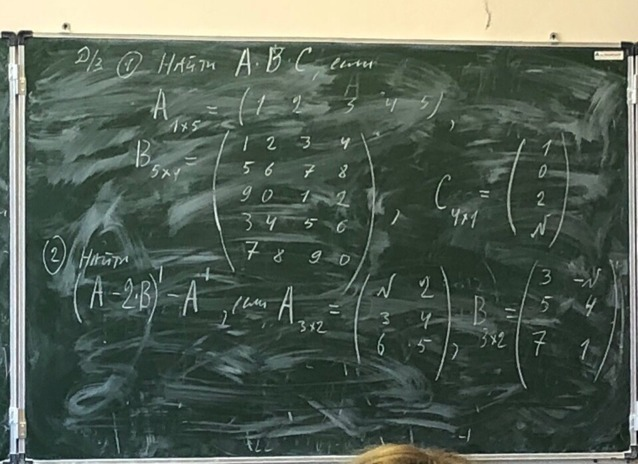 Д/з ① Найти A·B·C, если
A₁ₓ₅ = (1 2 3 4 5),
B₅ₓ₄ = (1 2 3 4
5 6 7 8
9 0 1 2
3 4 5 6
7 8 9 0),
C₄ₓ₁ = (1
0
2
N)
② Найти
(A - 2·B)' - A', если A₃ₓ₂ = (N 2
3 4
6 5),
B₃ₓ₂ = (3 -N
5 4
7 1)